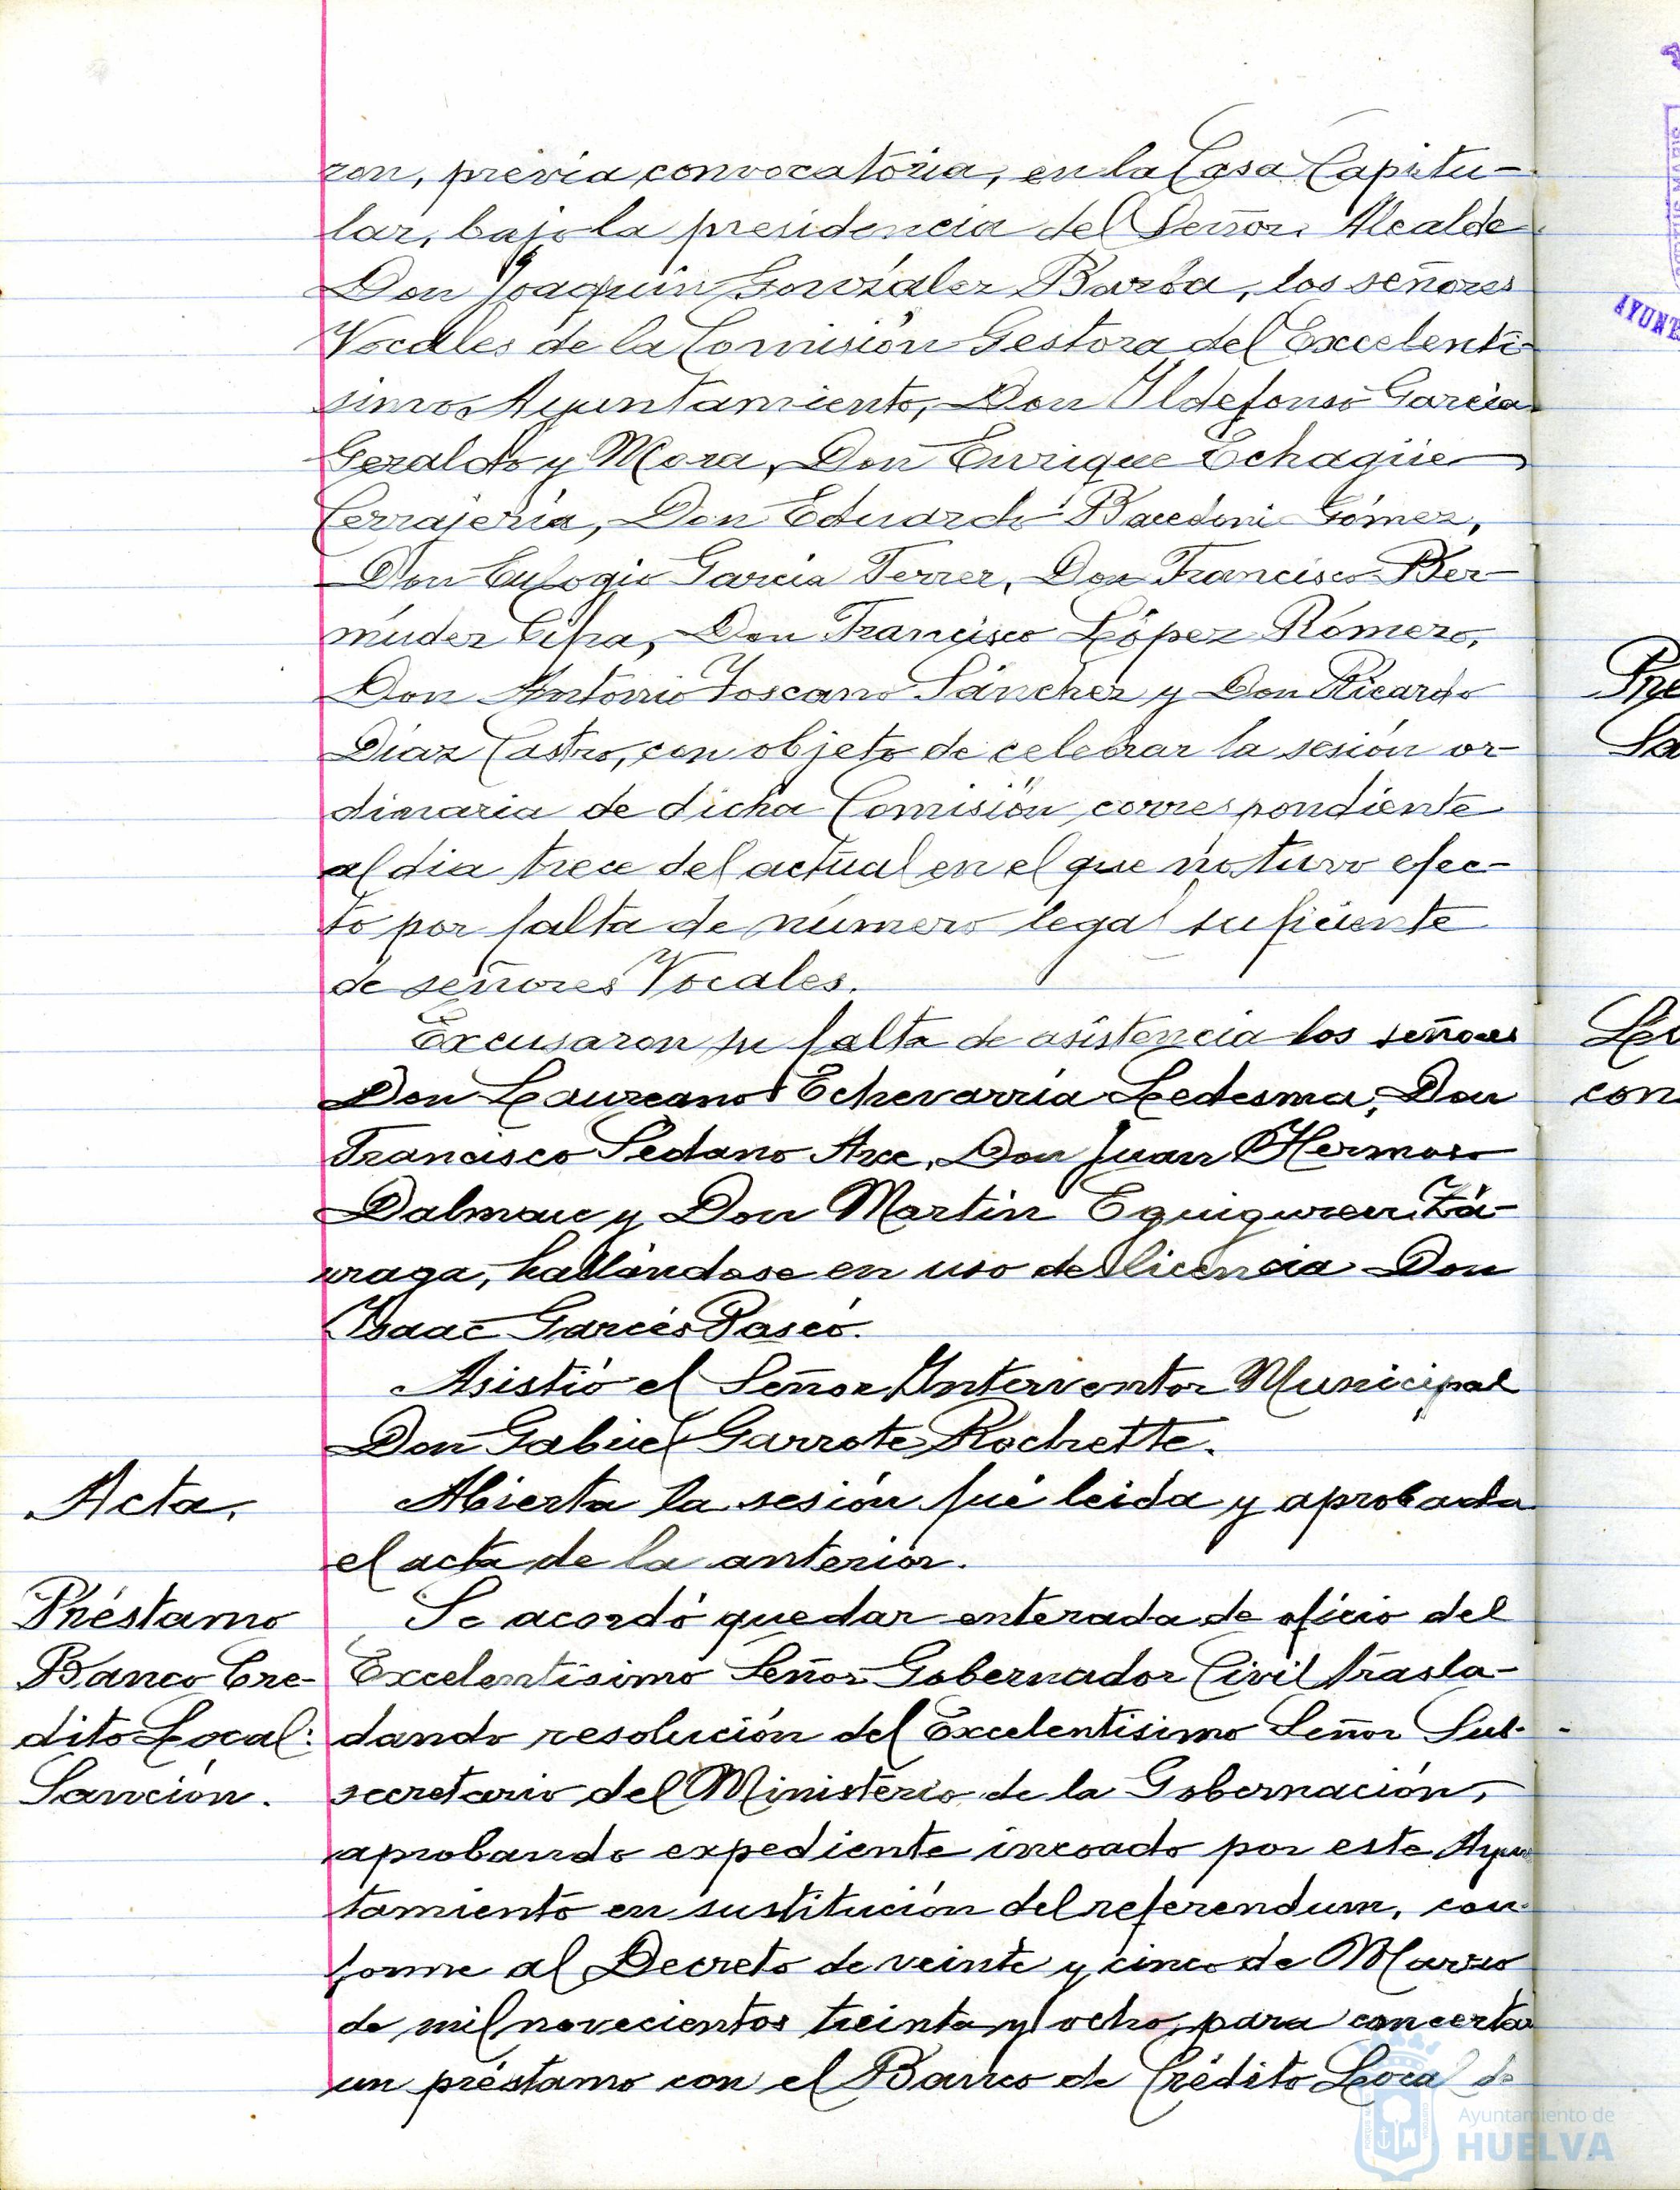 ron, previa convocatoria, en la Casa Capitu-
lar, bajo la presidencia del Señor Alcalde
Don Joaquín González Barba, los señores
Vocales de la Comisión Gestora del Excelentí-
simo Ayuntamiento, Don Ildefonso García
Geraldo y Mora, Don Enrique Echagüe
Cerrajería, Don Eduardo Bacedoni Gómez,
Don Eulogio García Ferrer, Don Francisco Ber-
múdez Cifra, Don Francisco López Romero,
Don Antonio Toscano Sánchez y Don Ricardo
Díaz Castro, con objeto de celebrar la sesión or-
dinaria de dicha Comisión correspondiente
al dia trece del actual en el que no tuvo efec-
to por falta de número legal suficiente
de señores Vocales.
Excusaron su falta de asistencia los señores
Don Laureano Echevarría Ledesma, Don
Francisco Sedano Arce, Don Juan Hermoso
Dalmau y Don Martín Eguiguren Zá-
rraga, hallándose en uso de licencia Don
Isaac Garcés Paseo.
Asistió el Señor Interventor Municipal
Don Gabriel Garrote Rochette.
Acta.
Abierta la sesión fué leida y aprobada
el acta de la anterior.
Préstamo
Banco Cré-
dito Local:
Sanción.
Se acordó quedar enterada de oficio del
Excelentísimo Señor Gobernador Civil trasla-
dando resolución del Excelentísimo Señor Sub-
secretario del Ministerio de la Gobernación,
aprobando expediente incoado por este Ayun
tamiento en sustitución del referendum, con-
forme al Decreto de veinte y cinco de Marzo
de mil novecientos treinta y ocho, para concertar
un préstamo con el Banco de Crédito Local de
Ayuntamiento de
HUELVA